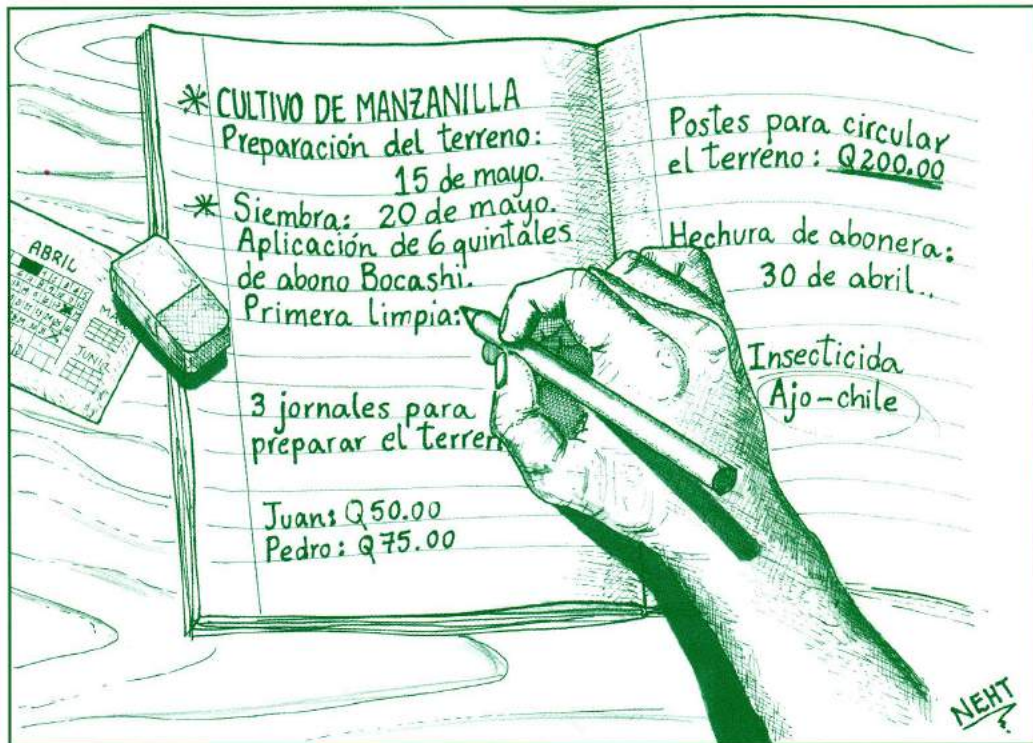 * CULTIVO DE MANZANILLA
Preparación del terreno:
15 de mayo.
* Siembra: 20 de mayo.
Aplicación de 6 quintales
de abono Bocashi.
Primera limpia:
3 jornales para
preparar el terren
Juan: Q50.00
Pedro: Q75.00
Postes para circular
el terreno: Q200.00
Hechura de abonera:
30 de abril..
Insecticida
Ajo-chile
ABRIL
JUNIO
NEHT